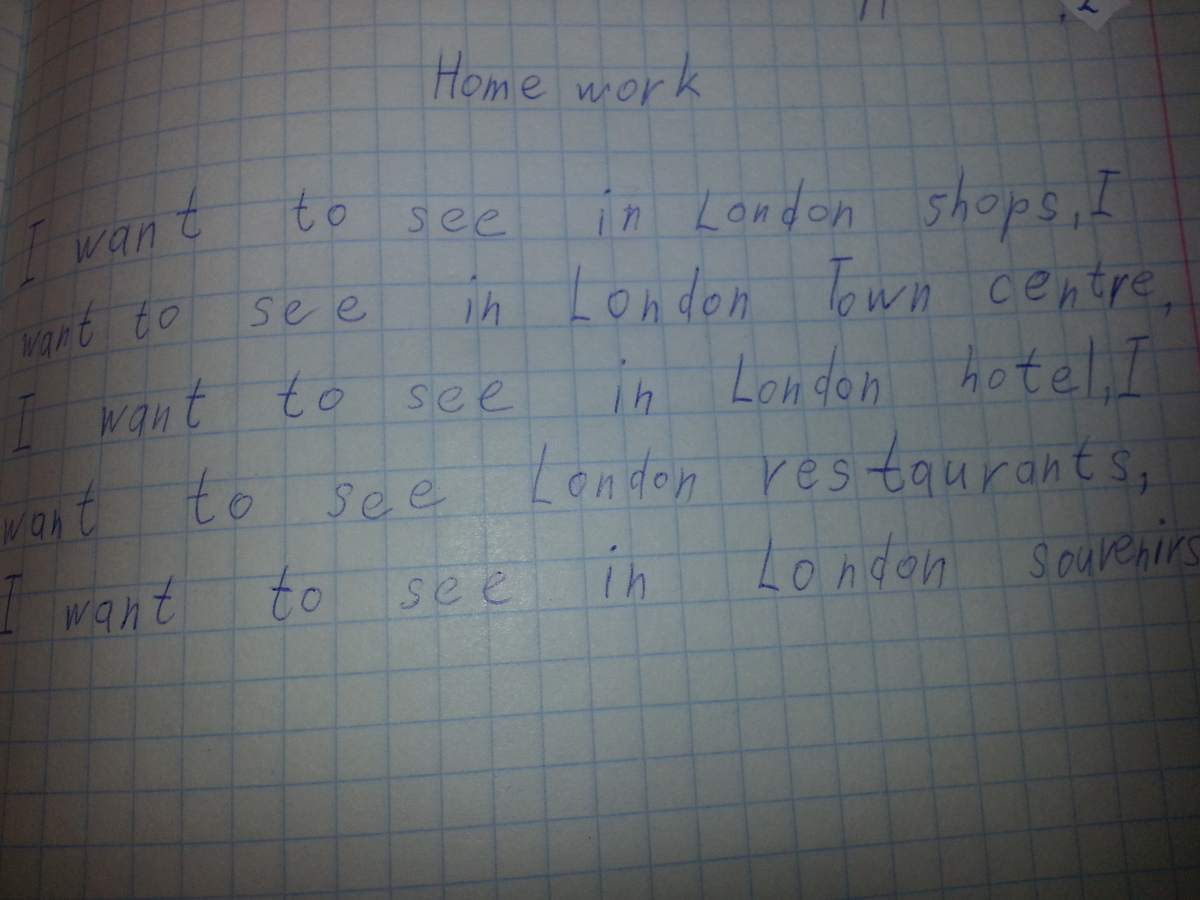 Home work
I want to see in London shops, I
want to see in London Town centre,
I want to see in London hotel, I
want to see London restaurants,
I want to see in London souvenirs